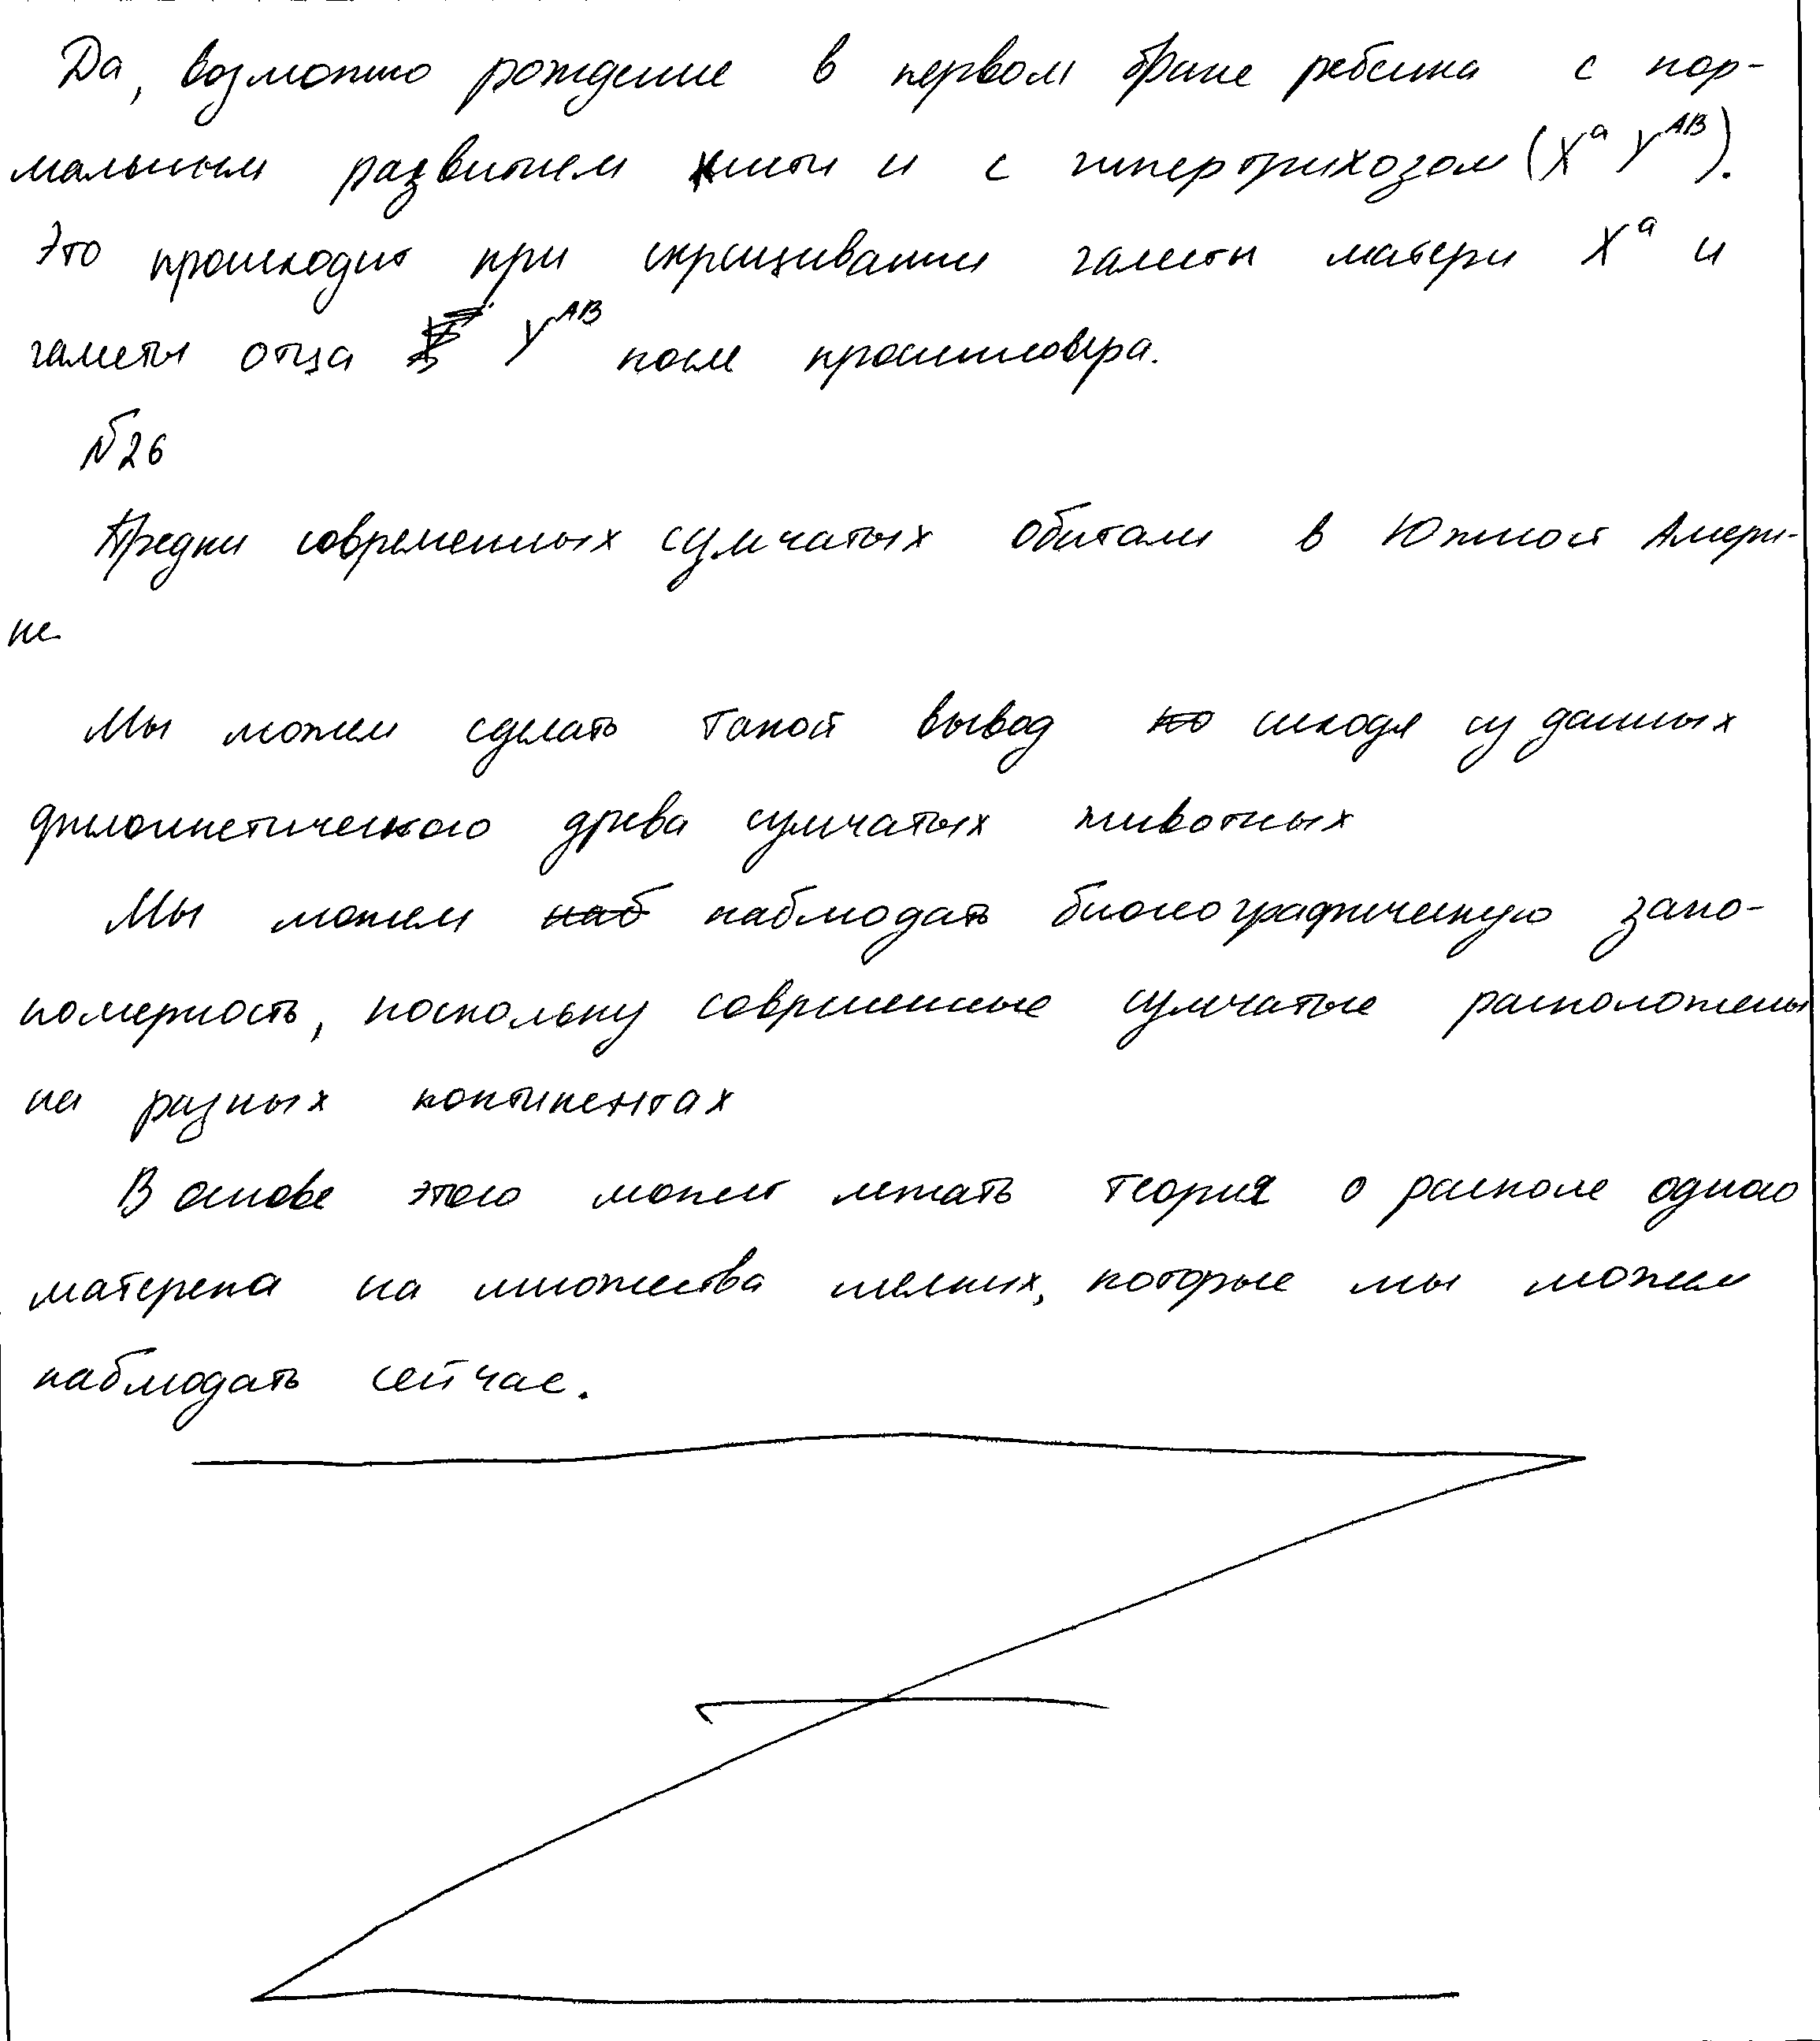 Да, возможно рождение в первом браке ребенка с нор-
мальным развитием кисти и с гипертрихозом (Xᵃ Yᴬᴮ).
Это происходит при скрещивании гаметы матери Xᵃ и
гаметы отца Yᴬᴮ после кроссинговера.
№26
Предки современных сумчатых обитали в Южной Амери-
ке
Мы можем сделать такой вывод исходя из данных
филогинетического древа сумчатых животных
Мы можем наблюдать биогеографическую зако-
номерность, поскольку современные сумчатые расположены
на разных континентах
В основе этого может лежать теория о расколе одного
материка на множества мелких, которые мы можем
наблюдать сейчас.